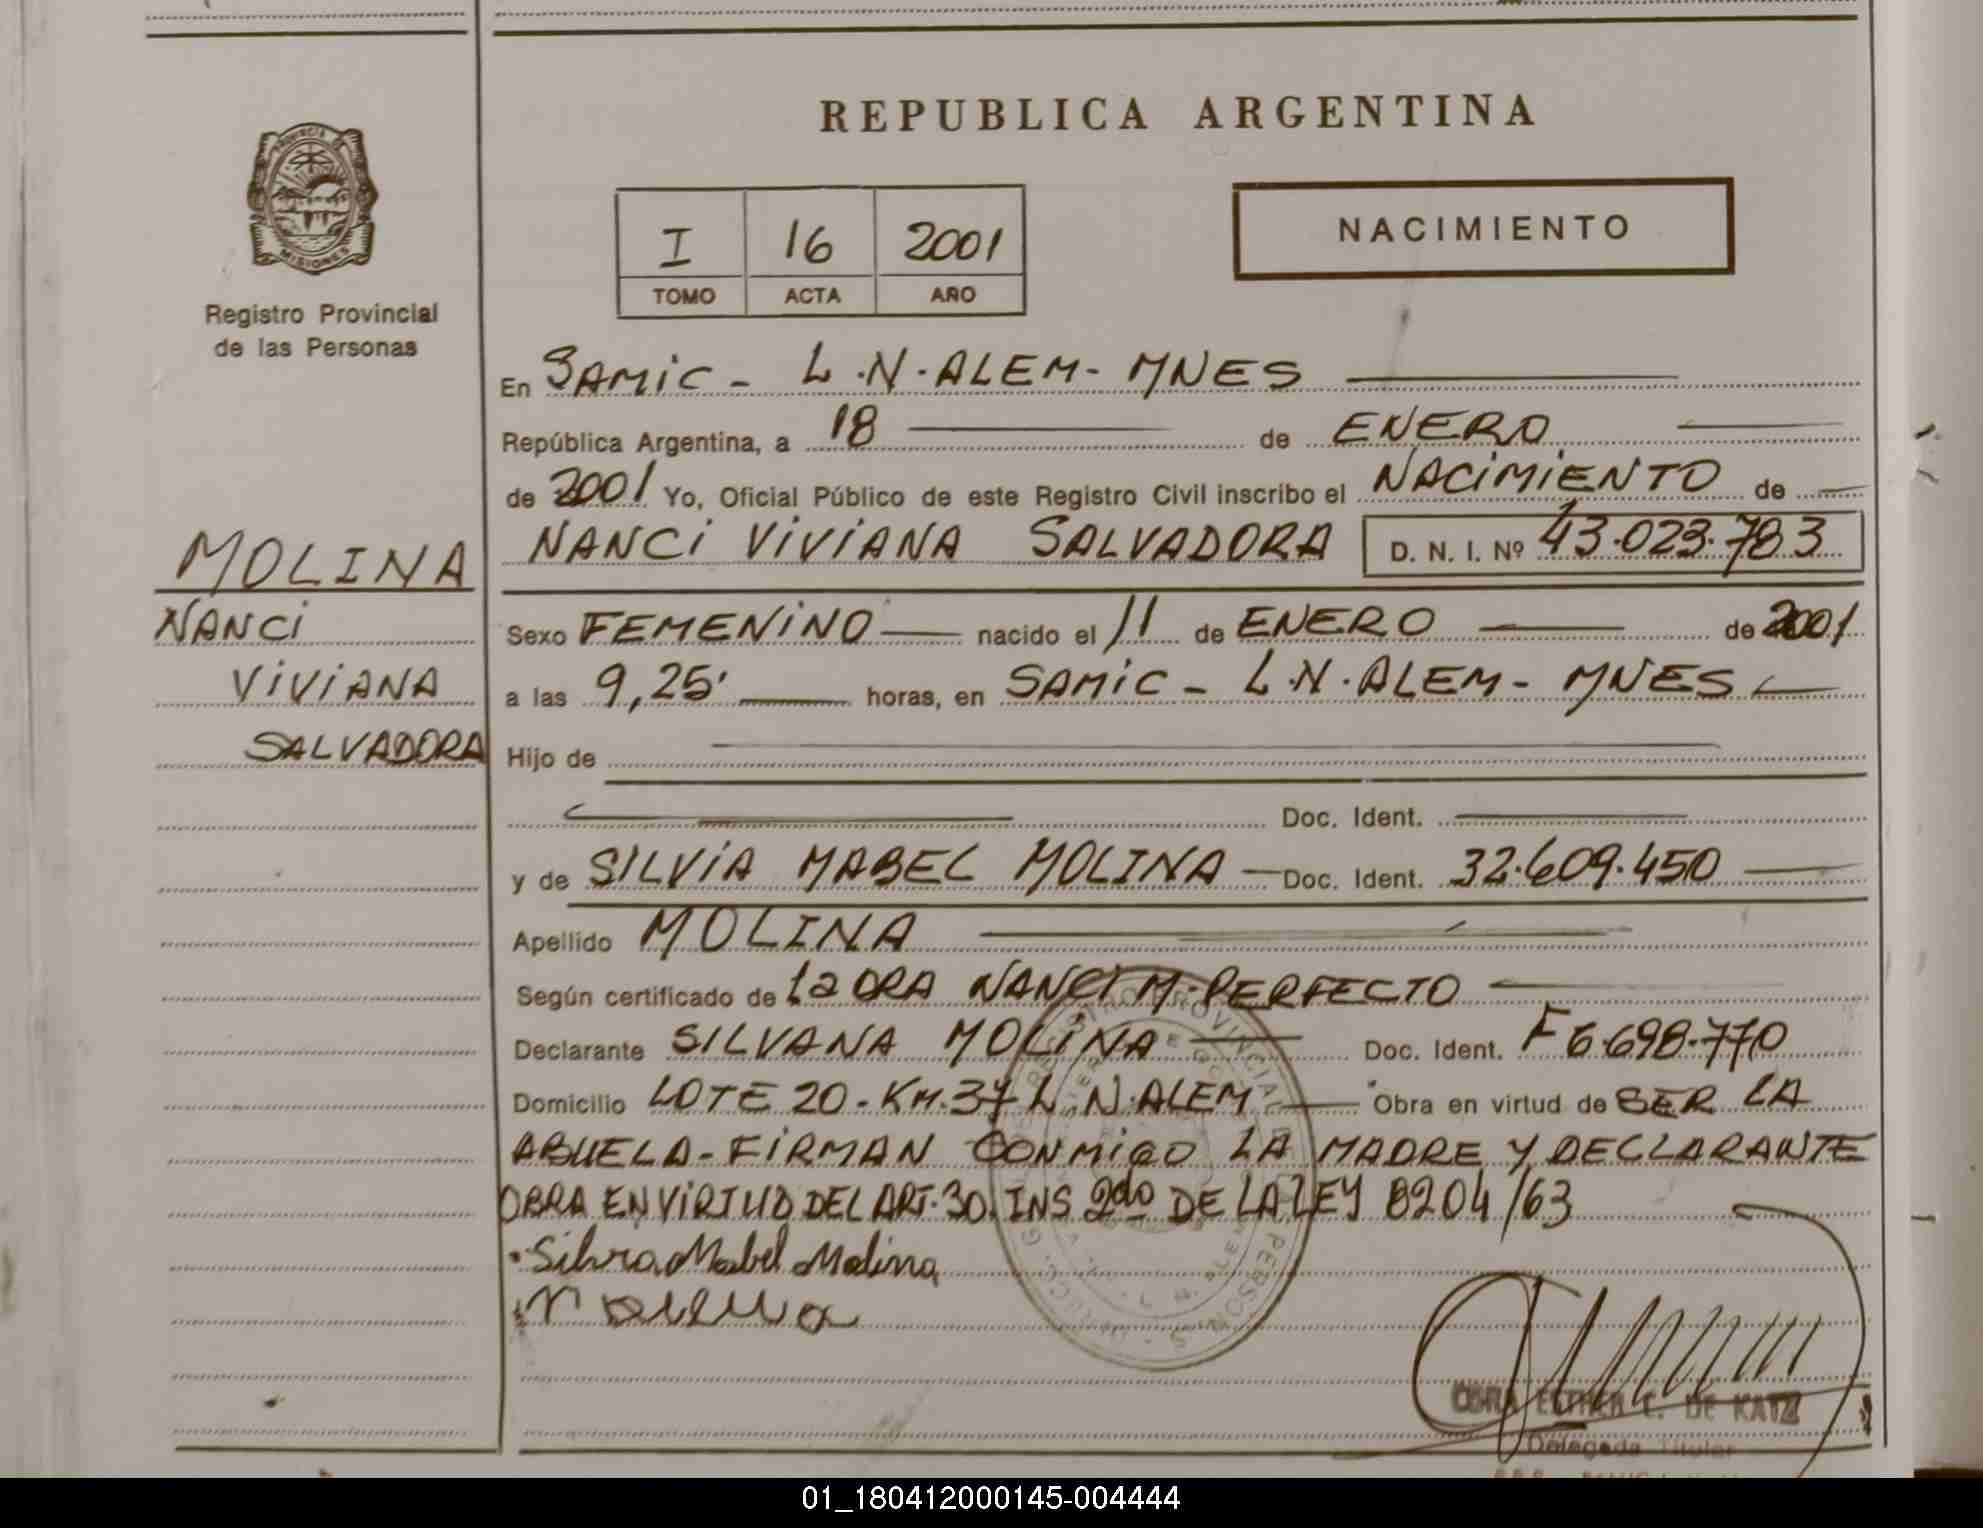 REPUBLICA ARGENTINA
PROVINCIA DE MISIONES
Registro Provincial
de las Personas
I 16 2001
TOMO ACTA AÑO
NACIMIENTO
En SAMIC - L.N. ALEM - MNES
República Argentina, a 18 de ENERO
de 2001 Yo, Oficial Público de este Registro Civil inscribo el NACIMIENTO de
NANCI VIVIANA SALVADORA D. N. I. Nº 43.023.783
MOLINA
NANCI
VIVIANA
SALVADORA
Sexo FEMENINO nacido el 11 de ENERO de 2001
a las 9,25' horas, en SAMIC - L.N. ALEM - MNES
Hijo de
Doc. Ident.
y de SILVIA MABEL MOLINA Doc. Ident. 32.609.450
Apellido MOLINA
Según certificado de la DRA NANCI M. PERFECTO
Declarante SILVANA MOLINA Doc. Ident. F 6.698.770
Domicilio LOTE 20 - KM. 37 L.N. ALEM Obra en virtud de SER LA
ABUELA - FIRMAN CONMIGO LA MADRE Y DECLARANTE
OBRA EN VIRTUD DEL ART. 30. INS 2do DE LA LEY 8204/63
Silvia Mabel Molina
ESTHER C. DE KATZ
Delegada Titular
01_180412000145-004444